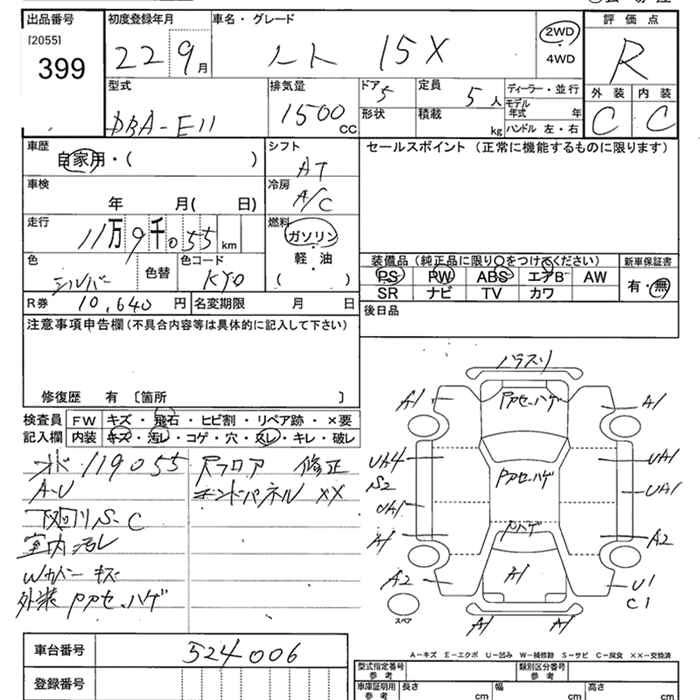 出品番号
[2055]
399
初度登録年月
22 9月
車名・グレード
ノート 15X
2WD
・
4WD
評価点
R
外装 内装
C C
型式
DBA-E11
排気量
1500 CC
ドア 5
形状
定員 5人
積載 kg
ディーラー・並行
モデル年式 年
ハンドル 左・右
車歴
自家用・( )
シフト
AT
セールスポイント (正常に機能するものに限ります)
車検
年 月( 日)
冷房
A/C
走行
11万9千055 km
燃料
ガソリン
軽・油
( )
色
シルバー
色替
色コード
KY0
装備品 (純正品に限り○をつけてください)
新車保証書
PS PW ABS エアB AW
有・無
SR ナビ TV カワ
R券 10,640 円
名変期限 月 日
後日品
注意事項申告欄 (不具合内容等は具体的に記入して下さい)
修復歴 有 〔箇所 〕
検査員
記入欄
FW キズ・飛石・ヒビ割・リペア跡・×要
内装 キズ・汚レ・コゲ・穴・スレ・キレ・破レ
メ 119055
A-U
下廻りS-C
室内汚レ
Wカバーキズ
外装 Pアセーハゲ
Rフロア 修正
エンドパネル XX
バラスリ
A1
Pアセーハゲ
A1
UA4
S2
UA1
A1
Pアセーハゲ
UA1
UA1
Pハゲ
A2
A2
A1
U1
C1
スペア
A1
A1
A-キズ E-エクボ U-凹み W-補修跡 S-サビ C-腐食 XX-交換済
車台番号
524006
登録番号
型式指定番号
参考
類別区分番号
参考
車庫証明用
参考
長さ cm
幅 cm
高さ cm